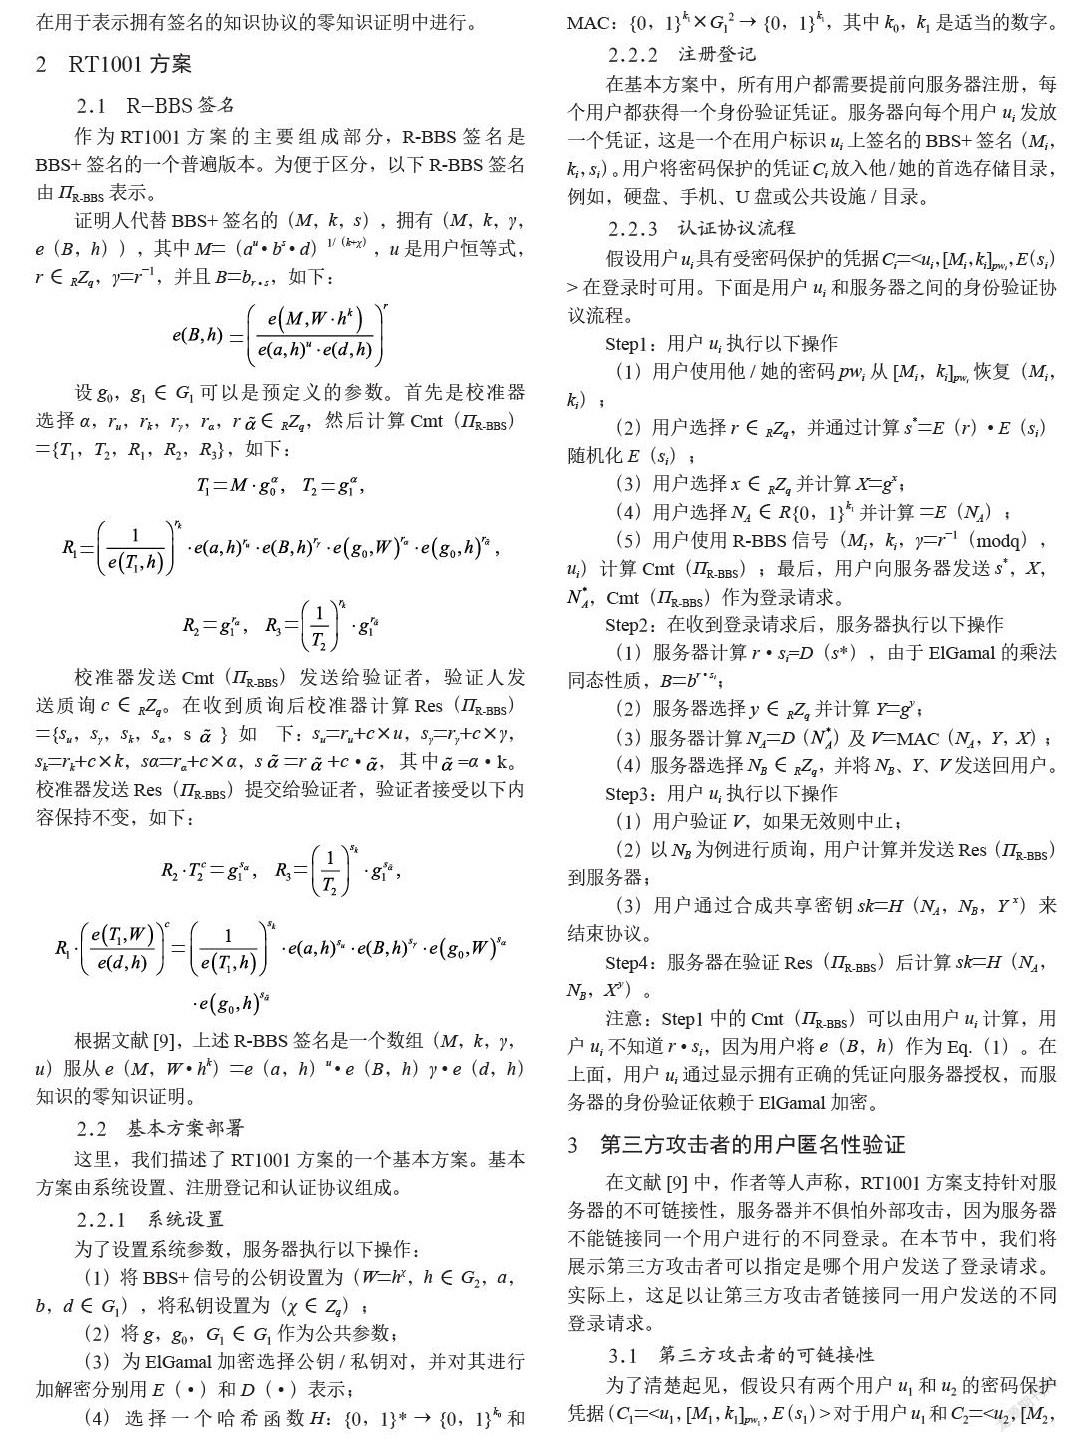 在用于表示拥有签名的知识协议的零知识证明中进行。
2　RT1001 方案
2.1　R-BBS 签名
作为 RT1001 方案的主要组成部分，R-BBS 签名是
BBS+ 签名的一个普遍版本。为便于区分，以下 R-BBS 签名
由 Π_{R-BBS} 表示。
证明人代替 BBS+ 签名的（M，k，s），拥有（M，k，γ，
e（B，h）），其中 M=（a^u • b^s • d）^{1/（k+χ）}，u 是用户恒等式，
r ∈ _RZ_q，γ=r^{−1}，并且 B=b_{r•s}，如下：
e(B,h) = ( e(M,W·h^k) / e(a,h)^u·e(d,h) )^r
设 g_0，g_1 ∈ G_1 可以是预定义的参数。首先是校准器
选择 α，r_u，r_k，r_γ，r_α，r α̃ ∈ _RZ_q，然后计算 Cmt（Π_{R-BBS}）
={T_1，T_2，R_1，R_2，R_3}，如下：
T_1 = M·g_0^α， T_2 = g_1^α，
R_1 = ( 1 / e(T_1,h) )^{r_k} ·e(a,h)^{r_u} ·e(B,h)^{r_γ} ·e(g_0,W)^{r_α} ·e(g_0,h)^{r_α̃}，
R_2 = g_1^{r_α}， R_3 = ( 1 / T_2 )^{r_k} ·g_1^{r_α̃}
校准器发送 Cmt（Π_{R-BBS}）发送给验证者，验证人发
送质询 c ∈ _RZ_q。在收到质询后校准器计算 Res（Π_{R-BBS}）
={s_u，s_γ，s_k，s_α，s α̃ } 如　下：s_u=r_u+c×u，s_γ=r_γ+c×γ，
s_k=r_k+c×k，sα=r_α+c×α，s α̃ =r α̃ +c • α̃，其中 α̃ =α • k。
校准器发送 Res（Π_{R-BBS}）提交给验证者，验证者接受以下内
容保持不变，如下：
R_2·T_2^c = g_1^{s_α}， R_3 = ( 1 / T_2 )^{s_k} ·g_1^{s_α̃}，
R_1·( e(T_1,W) / e(d,h) )^c = ( 1 / e(T_1,h) )^{s_k} ·e(a,h)^{s_u} ·e(B,h)^{s_γ} ·e(g_0,W)^{s_α}
·e(g_0,h)^{s_α̃}
根据文献 [9]，上述 R-BBS 签名是一个数组（M，k，γ，
u）服从 e（M，W • h^k）=e（a，h）^u • e（B，h）γ • e（d，h）
知识的零知识证明。
2.2　基本方案部署
这里，我们描述了 RT1001 方案的一个基本方案。基本
方案由系统设置、注册登记和认证协议组成。
2.2.1　系统设置
为了设置系统参数，服务器执行以下操作：
（1）将 BBS+ 信号的公钥设置为（W=h^χ，h ∈ G_2，a，
b，d ∈ G_1），将私钥设置为（χ ∈ Z_q）；
（2）将 g，g_0，G_1 ∈ G_1 作为公共参数；
（3）为 ElGamal 加密选择公钥 / 私钥对，并对其进行
加解密分别用 E（•）和 D（•）表示；
（4）选择一个哈希函数 H：{0，1}* → {0，1}^{k_0} 和
MAC：{0，1}^{k_1}×G_1^2 → {0，1}^{k_1}，其中 k_0，k_1 是适当的数字。
2.2.2　注册登记
在基本方案中，所有用户都需要提前向服务器注册，每
个用户都获得一个身份验证凭证。服务器向每个用户 u_i 发放
一个凭证，这是一个在用户标识 u_i 上签名的 BBS+ 签名（M_i，
k_i，s_i）。用户将密码保护的凭证 C_i 放入他 / 她的首选存储目录，
例如，硬盘、手机、U 盘或公共设施 / 目录。
2.2.3　认证协议流程
假设用户 u_i 具有受密码保护的凭据 C_i=<u_i，[M_i，k_i]_{pw_i}，E（s_i）
> 在登录时可用。下面是用户 u_i 和服务器之间的身份验证协
议流程。
Step1：用户 u_i 执行以下操作
（1）用户使用他 / 她的密码 pw_i 从 [M_i，k_i]_{pw_i} 恢复（M_i，
k_i）；
（2）用户选择 r ∈ _RZ_q，并通过计算 s^*=E（r）• E（s_i）
随机化 E（s_i）；
（3）用户选择 x ∈ _RZ_q 并计算 X=g^x；
（4）用户选择 N_A ∈ R{0，1}^{k_1} 并计算 =E（N_A）；
（5）用户使用 R-BBS 信号（M_i，k_i，γ=r^{−1}（modq），
u_i）计算 Cmt（Π_{R-BBS}）；最后，用户向服务器发送 s^*，X，
N_A^*，Cmt（Π_{R-BBS}）作为登录请求。
Step2：在收到登录请求后，服务器执行以下操作
（1）服务器计算 r • s_i=D（s*），由于 ElGamal 的乘法
同态性质，B=b^{r•s_i}；
（2）服务器选择 y ∈ _RZ_q 并计算 Y=g^y；
（3）服务器计算 N_A=D（N_A^*）及 V=MAC（N_A，Y，X）；
（4）服务器选择 N_B ∈ _RZ_q，并将 N_B、Y、V 发送回用户。
Step3：用户 u_i 执行以下操作
（1）用户验证 V，如果无效则中止；
（2）以 N_B 为例进行质询，用户计算并发送 Res（Π_{R-BBS}）
到服务器；
（3）用户通过合成共享密钥 sk=H（N_A，N_B，Y^x）来
结束协议。
Step4：服务器在验证 Res（Π_{R-BBS}）后计算 sk=H（N_A，
N_B，X^y）。
注意：Step1 中的 Cmt（Π_{R-BBS}）可以由用户 u_i 计算，用
户 u_i 不知道 r • s_i，因为用户将 e（B，h）作为 Eq.（1）。在
上面，用户 u_i 通过显示拥有正确的凭证向服务器授权，而服
务器的身份验证依赖于 ElGamal 加密。
3　第三方攻击者的用户匿名性验证
在文献 [9] 中，作者等人声称，RT1001 方案支持针对服
务器的不可链接性，服务器并不俱怕外部攻击，因为服务器
不能链接同一个用户进行的不同登录。在本节中，我们将
展示第三方攻击者可以指定是哪个用户发送了登录请求。
实际上，这足以让第三方攻击者链接同一用户发送的不同
登录请求。
3.1　第三方攻击者的可链接性
为了清楚起见，假设只有两个用户 u_1 和 u_2 的密码保护
凭据（C_1=<u_1，[M_1，k_1]_{pw_1}，E（s_1）> 对于用户 u_1 和 C_2=<u_2，[M_2，